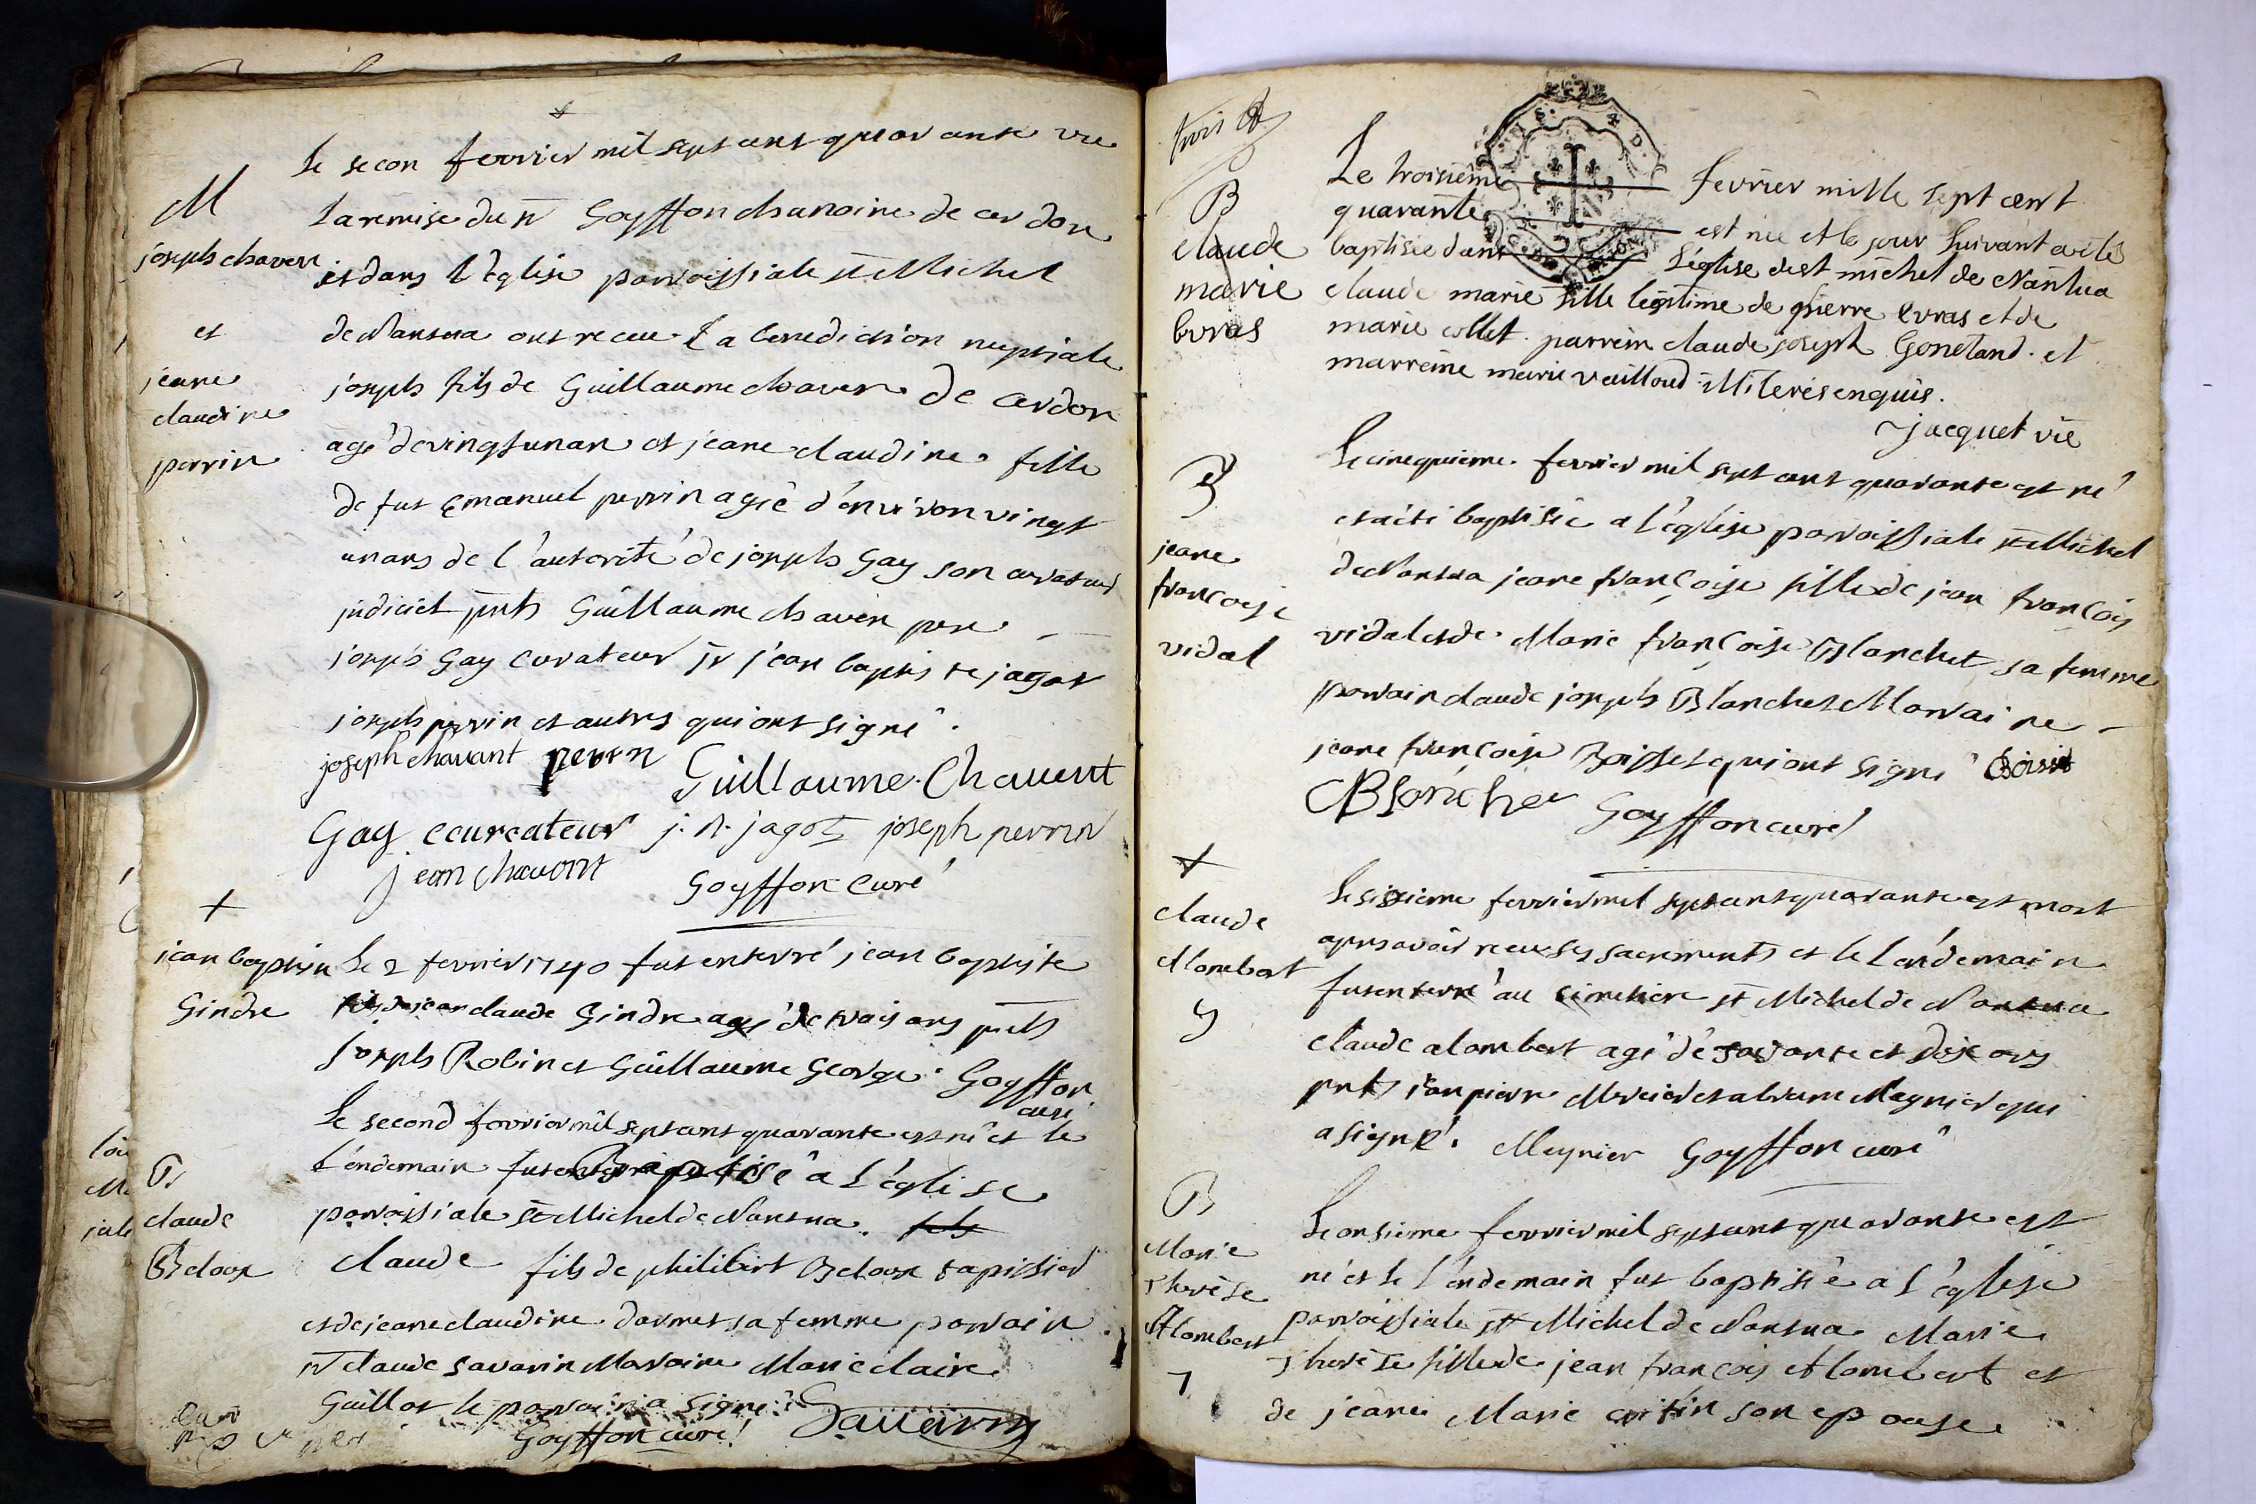 Le secon fevrier mil sept cent quarante vue
La remise du Sr Goyffon chanoine de cerdon
M
joseph chaven
et dans L'église parroissiale St Michel
et
de Nantua ont receu La benediction nuptiale
jeane
joseph fils de Guillaume chaven de Cerdon
claudine
agé de vingt un an et jeane claudine fille
perrin
de fut Emanuel perrin agée d'environ vingt
un ans de l'autorité de joseph Gay son curateur
judiciel pnts Guillaume chaven pere
joseph Gay curateur Sr jean baptiste jagot
joseph perrin et autres qui ont signé.
joseph chavant perrn Guillaume Chavent
Gay ccurcateur j. B. jagot joseph perrin
jean chavant Goyffon Curé
jean baptiste Le 2 fevrier 1740 fut enterré jean baptiste
Gindre fils de jean claude Gindre agé de trois ans pnts
joseph Robin et Guillaume George. Goyffon
curé
Le second fevrier mil sept cent quarante est né et le
L'endemain fut Baptisé a L'église
B parroissiale St Michel de Nantua. fils
claude
Beloux claude fils de philibert Beloux tapissier
et de jeane claudine darmet sa femme parrain
Sr claude savarin Marraine Marie claire
Guillot le parrain a signé Savarin
Goyffon curé
trois
Le troisième fevrier mille sept cent
B quarante est née et le jour suivant a été
claude baptisée dans L'église de St michel de Nantua
marie claude marie fille légitime de pierre Evras et de
Evras marie collet. parrein claude joseph Gonetand. et
marreine marie vailloud Illiterés enquis.
jacquet vic
B Le cinquieme fevrier mil sept cent quarante est né
et a été baptisée a L'église parroissiale St Michel
jeane
françoise de Nantua jeane françoise fille de jean françois
vidal vidal et de Marie françoise Blanchet sa femme
parrain claude joseph Blanchet Marraine
jeane françoise Boisset qui ont signé Boisset
Blanchet Goyffon curé
Le sixieme fevrier mil sept cent quarante est mort
claude
apres avoir receu ses sacrements et le L'endemain
Alombert
fut enterré au cimetiere St Michel de Nantua
claude alombert agé de soixante et dix ans
pnts jean pierre Mercier et abram Meynier qui
a signé. Meynier Goyffon curé
B
Le onsieme fevrier mil sept cent quarante est
Marie
né et le L'endemain fut baptisée a L'église
therèse
parroissiale St Michel de Nantua Marie
Alombert
therèse fille de jean françois Alombert et
7
de jeane Marie critin son epouse